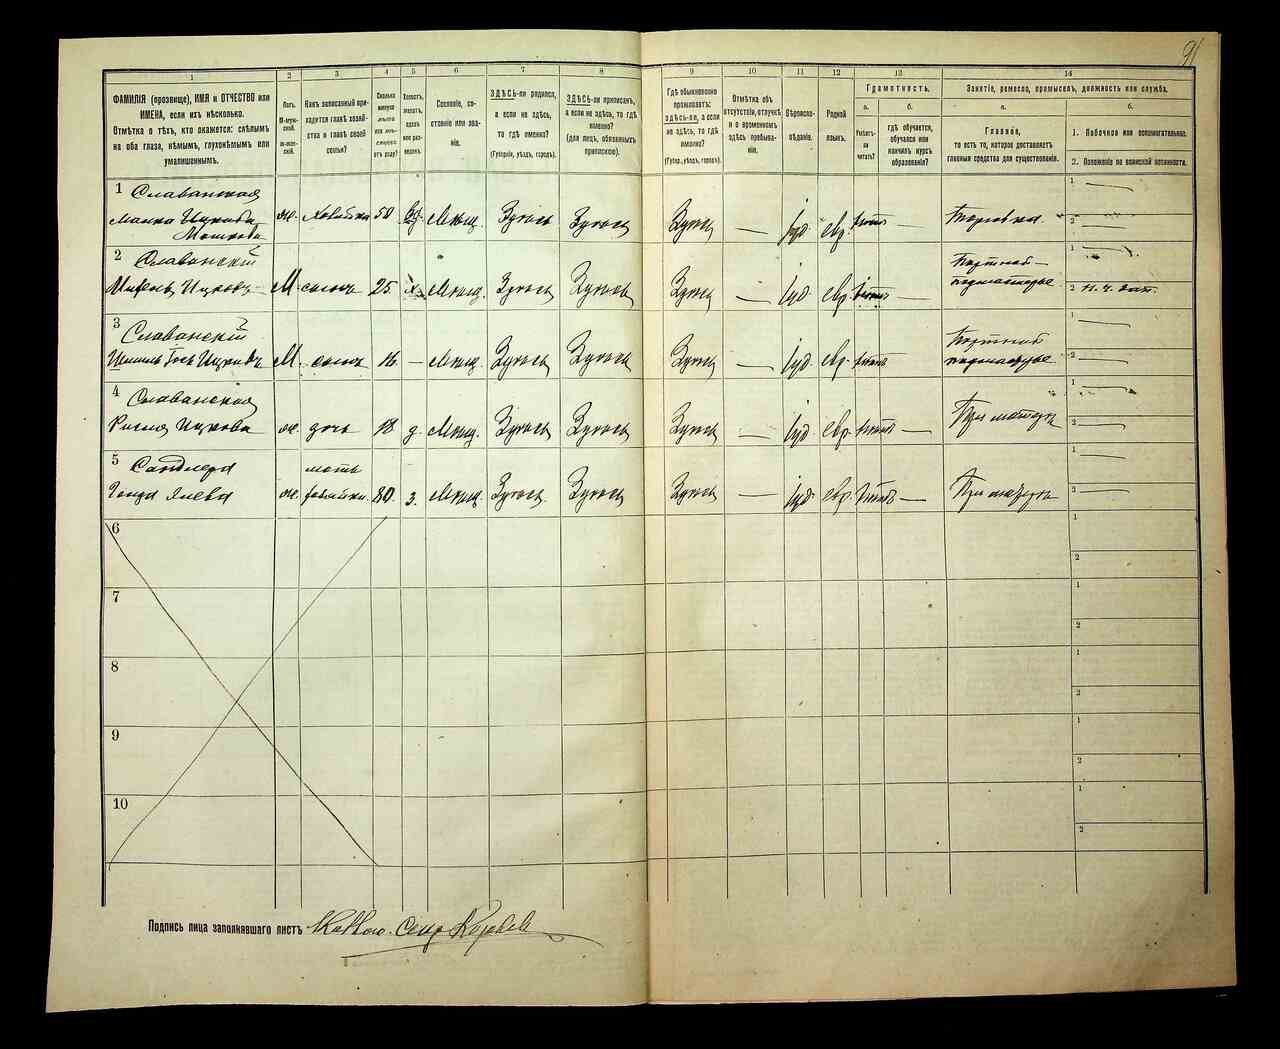 91
1 2 3 4 5 6 7 8 9 10 11 12 13 14
ФАМИЛІЯ (прозвище), ИМЯ и ОТЧЕСТВО или
ИМЕНА, если ихъ нѣсколько.
Отмѣтка о тѣхъ, кто окажется: слѣпымъ
на оба глаза, нѣмымъ, глухонѣмымъ или
умалишеннымъ.
Полъ.
М-муж-
ской.
Ж-жен-
скій.
Какъ записанный при-
ходится главѣ хозяй-
ства и главѣ своей
семьи?
Сколько
минуло
лѣтъ
Холостъ,
женатъ,
вдовъ
или раз-
веденъ.
Сословіе, со-
стояніе или зва-
ніе.
ЗДѢСЬ-ли родился,
а если не здѣсь,
то гдѣ именно?
(Губернія, уѣздъ, городъ).
ЗДѢСЬ-ли приписанъ,
а если не здѣсь, то гдѣ
именно?
(для лицъ, обязанныхъ
припискою).
Гдѣ обыкновенно
проживаетъ:
здѣсь-ли, а если
не здѣсь, то гдѣ
именно?
(Губер., уѣздъ, городъ).
Отмѣтка объ
отсутствіи, отлучкѣ
и о временномъ
здѣсь пребыва-
ніи.
Вѣроиспо-
вѣданіе.
Родной
языкъ.
Грамотность.
а.
Умѣетъ-
ли
читать?
б.
гдѣ обучается,
обучался или
кончилъ курсъ
образованія?
Занятіе, ремесло, промыселъ, должность или служба.
а.
Главное,
то есть то, которое доставляетъ
главныя средства для существованія.
б.
1. Побочное или вспомогательное.
2. Положеніе по воинской повинности.
1 Славанская
Малка Ицкова ж. хозяйка 50 вд. Мѣщ. Здѣсь Здѣсь Здѣсь — іуд. евр. нѣтъ — Торговка 1 — 2 —
Мошкова
2 Славанскій
Ицковъ М. сынъ 25 х. Мѣщ. Здѣсь Здѣсь Здѣсь — іуд. евр. нѣтъ — Портной — подмастерье 1 — 2
3 Славанскій
Ицковъ М. сынъ 16 — Мѣщ. Здѣсь Здѣсь Здѣсь — іуд. евр. нѣтъ — Портной подмастерье 1 — 2 —
4 Славанская
Ицкова ж. дочь 18 д. Мѣщ. Здѣсь Здѣсь Здѣсь — іуд. евр. нѣтъ — При матери 1 — 2 —
5 Сандлера мать
ж. хозяйки 80. з. Мѣщ. Здѣсь Здѣсь Здѣсь — іуд. евр. нѣтъ — При 1 — 2 —
6 1 2
7 1 2
8 1 2
9 1 2
10 1 2
Подпись лица заполнявшаго листъ